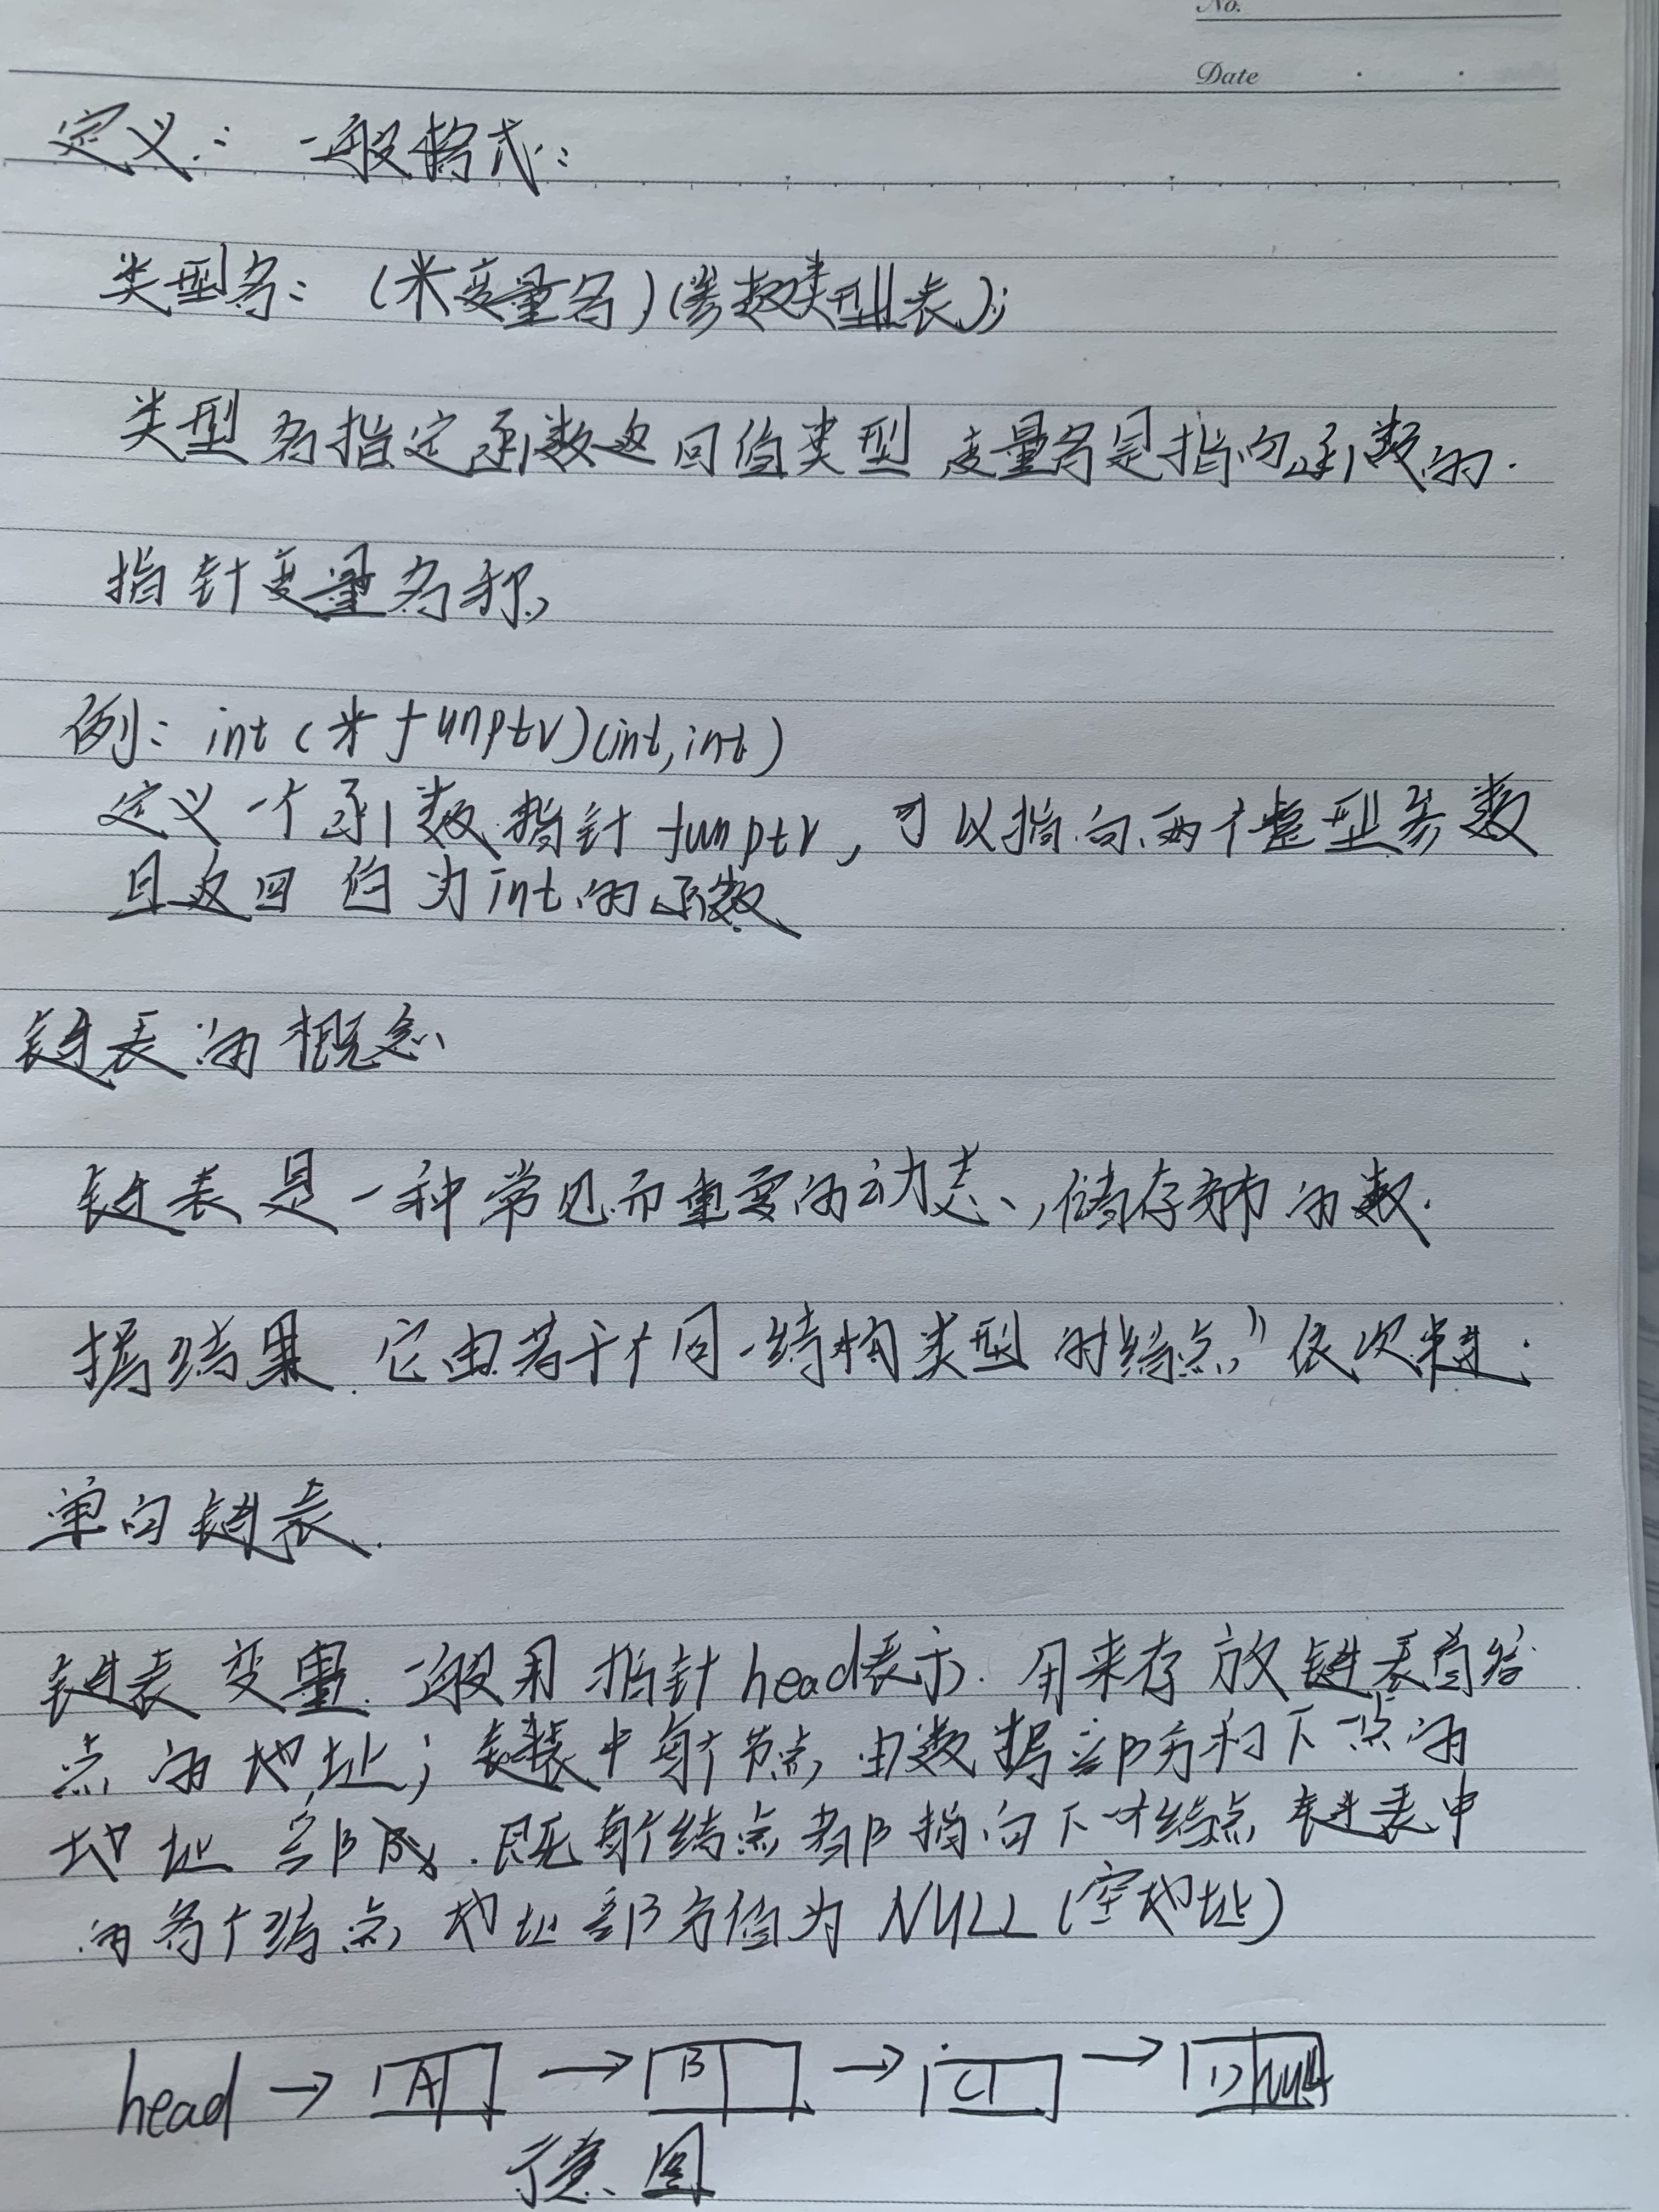 No.
Date
定义：一般格式：
类型名：(*变量名)(参数类型表)；
类型名指定函数返回值类型 变量名是指向函数的.
指针变量名称,
例：int (*funptr)(int,int)
定义一个函数指针 funptr，可以指向两个整型参数
且返回值为int的函数
链表的概念
链表是一种常见而重要的动态、储存 的数.
据结果.它由若干个同一结构类型的“结点”依次串连.
单向链表.
链表变量.一般用指针head表示.用来存放链表首结
点的地址；链表中每个节点由数据部分和下一点的
地址部成.既每个结点都指向下一个结点 链表中
的各个结点 地址部分值为NULL(空地址)
head → A → B → C → D NULL
示意图